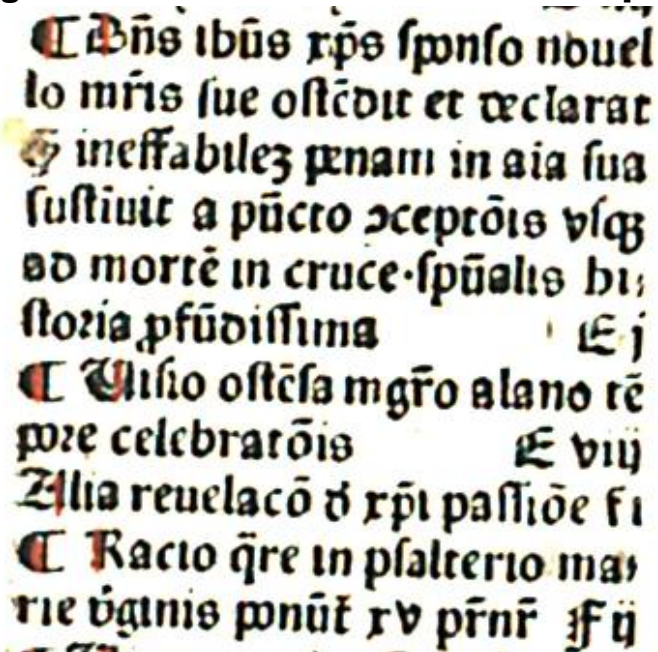 ¶ Dñs ihūs xp̄s ſponſo nouel
lo mr̄is ſue oſtēdit et declarat
ꝙ ineffabileꝫ penam in aīa ſua
ſuſtīuit a pūcto ꝯceptōis vſqꝫ
ad mortē in cruce·ſpūalis hi⸗
ſtoꝛia ꝓfūdiſſima E j
¶ Uiſio oſtēſa mgr̄o alano tē
poꝛe celebratōis E viij
Alia reuelacō d̄ xp̄i paſſiōe F i
¶ Racio q̄re in pſalterio ma⸗
rie v̄ginis ponūt̄ xv pr̄nr̄ F ij